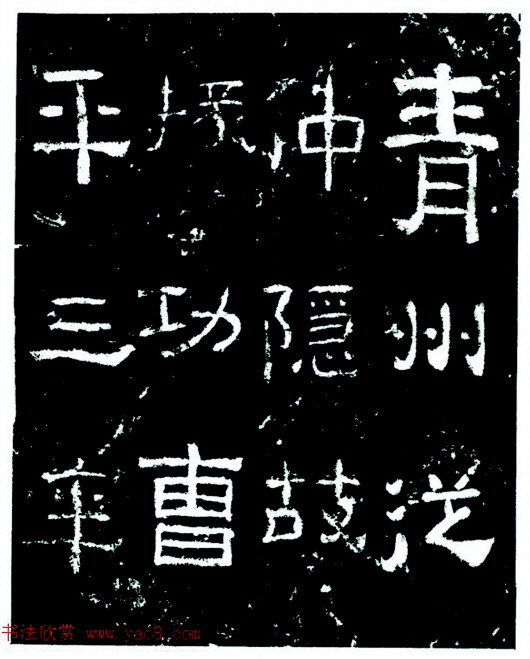 青州從
仲隱故
掾功曹
平三年
书法欣赏 www.yac8.com